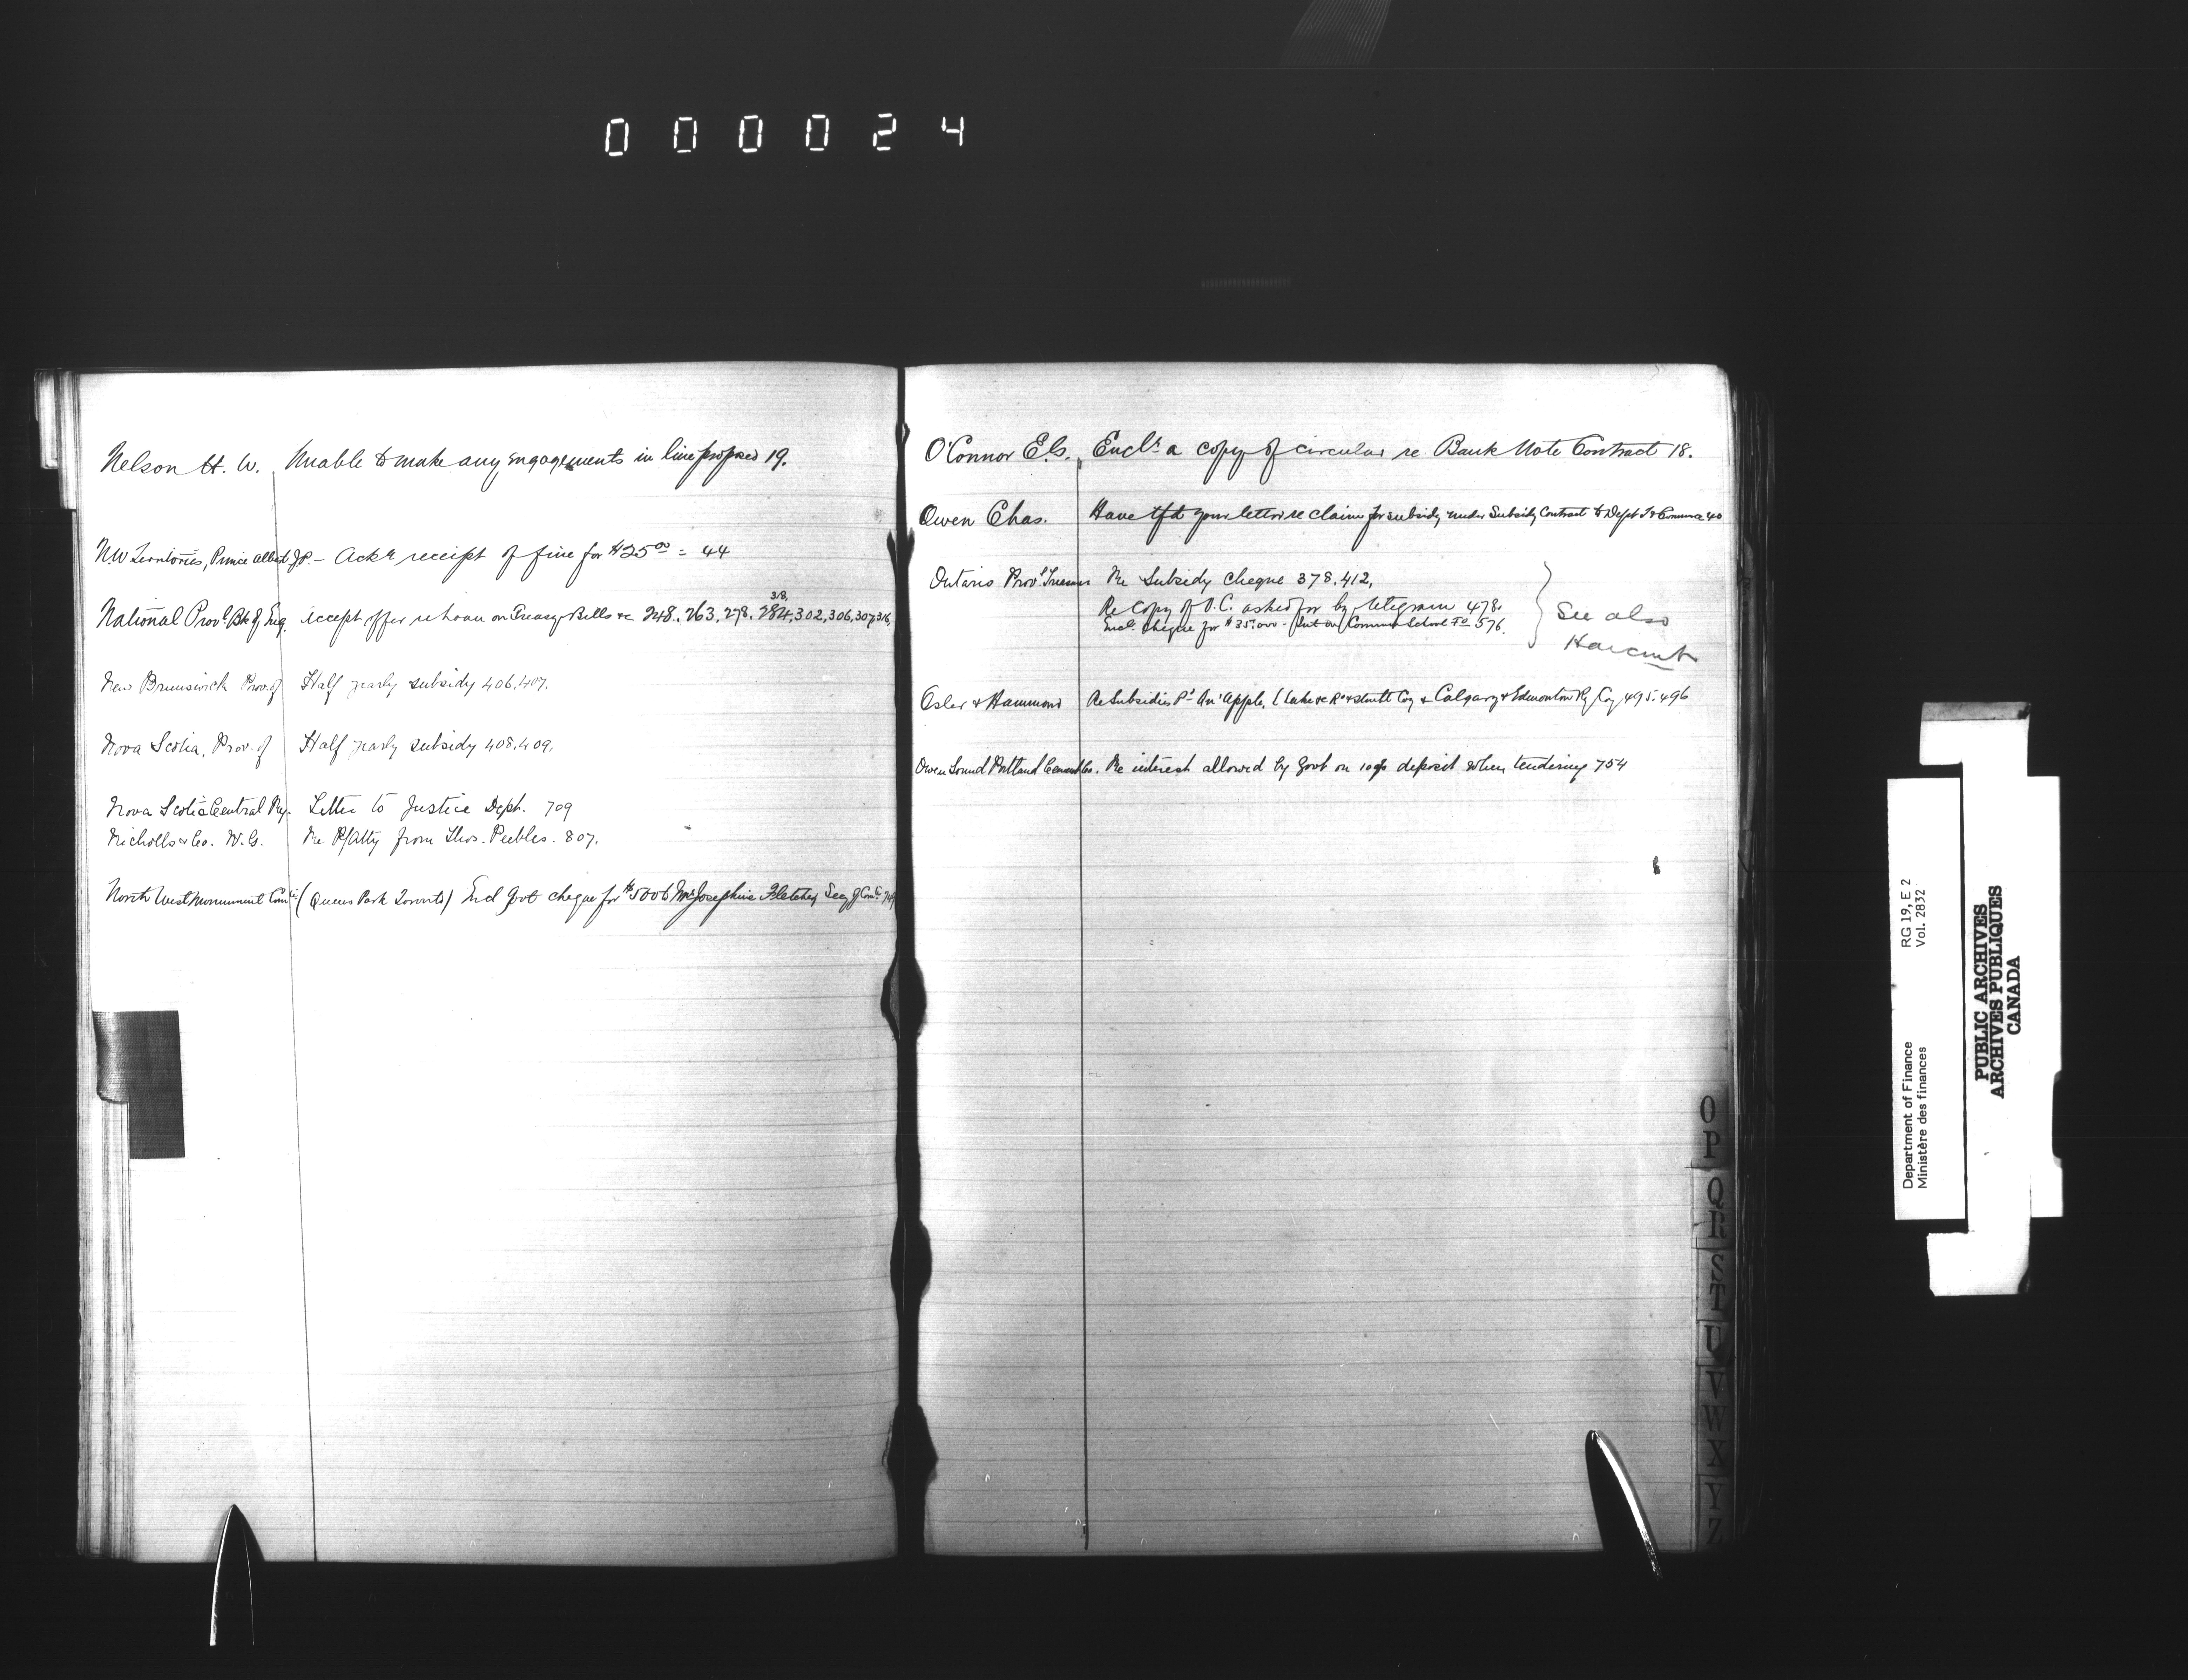 000024
Nelson H. W. Unable to make any engagements in line proposed 19.
N.W Territories, Prince Albert J.P. – Ackg receipt of fine for $25.00 = 44
318,
National Provl Bk of Eng. accept offer re loan on Treasy Bills &c 248. 263, 278. 284, 302, 306, 307, 316,
New Brunswick Prov. of Half yearly subsidy 406, 407.
Nova Scotia, Prov. of Half yearly subsidy 408, 409.
Nova Scotia Central Ry. Letter to Justice Dept. 709
Nicholls & Co. W.G. Re P/Atty from Thos. Peebles. 807.
North West Monument Comtee (Queens Park Toronto) Encl Govt cheque for $500 to Mrs Josephine Fletcher Secy of Com.
O'Connor E.S. Encls a copy of circular re Bank Note Contract 18.
Owen Chas. Have tfd your letter re claim for subsidy under Subsidy Contract to Dept T & Commerce 40
Ontario Provl Treasr Re Subsidy cheque 378, 412,
Re Copy of O.C. asked for by telegram 478.
Encl. cheque for $35.000 - Int on Common School Fd 576.
See also
Harcourt
Osler & Hammond Re Subsidies Qu'Apple, (Lake &c Rd & Stmbt Coy & Calgary & Edmonton Ry Coy 495. 496
Owen Sound Portland Cement Co. Re interest allowed by Govt on 10% deposit when tendering 754
O
P
Q
R
S
T
U
V
W
X
Y
Z
Department of Finance RG 19, E 2
Ministère des finances Vol. 2832
PUBLIC ARCHIVES
ARCHIVES PUBLIQUES
CANADA